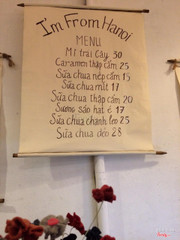 I'm From Hanoi
MENU
Mì trái cây 30
Caramen thập cẩm 25
Sữa chua nếp cẩm 15
Sữa chua mít 17
Sữa chua thập cẩm 20
Sương sáo hạt é 17
Sữa chua chanh leo 25
Sữa chua dẻo 28